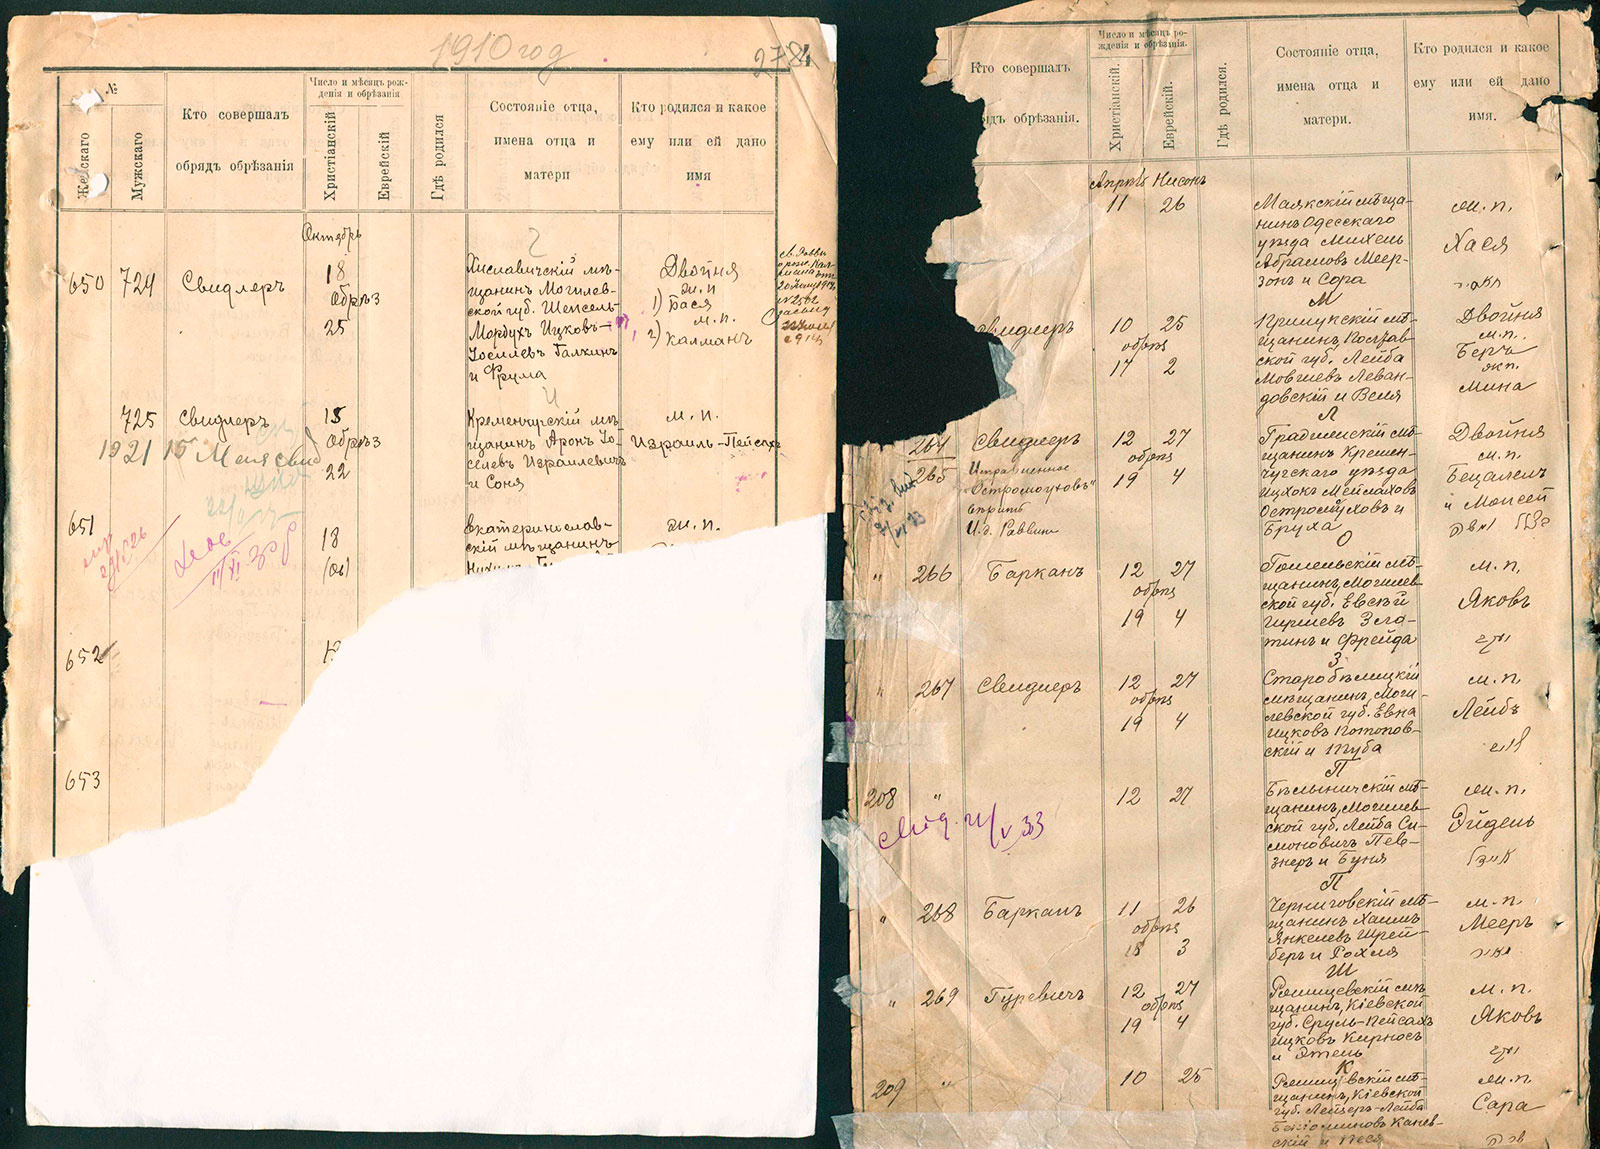 1910 год
278
№
Женскаго
Мужскаго
Кто совершалъ
обрядъ обрѣзанія
Число и мѣсяцъ рож-
денія и обрѣзанія
Христіанскій
Еврейскій
Гдѣ родился
Состояніе отца,
имена отца и
матери
Кто родился и какое
ему или ей дано
имя
Октябрь
650 724 Свидлеръ
18
Обрѣз
25
Хиславичскій мѣ-
щанинъ Могилев-
ской губ. Шепсель-
Мордухъ Ицковъ-
Іоселевъ Галкинъ
и Фрума
Двойня
ж.п
1) Бася
м.п.
2) Калманъ
725 Свидлеръ
15
Обрѣз
22
Кременчугскій мѣ-
щанинъ Аронъ Іо-
селевъ Израилевичъ
и Соня
м.п.
Израиль-Пейсахъ
1921 15
651
18
Екатеринослав-
скій мѣщанинъ
ж.п.
652
653
Кто совершалъ
дъ обрѣзанія.
Число и мѣсяцъ ро-
жденія и обрѣзанія.
Христіанскій.
Еврейскій.
Гдѣ родился.
Состояніе отца,
имена отца и
матери.
Кто родился и какое
ему или ей дано
имя.
Апрѣль Нисонъ
11 26
Маякскій мѣща-
нинъ Одесскаго
уѣзда Михель
Абрамовъ Меер-
зонъ и Сора
ж.п.
Хася
М
Свидлеръ
10 25
обрѣз
17 2
Крилукскій мѣ-
щанинъ, Полтав-
ской губ. Лейба
Мовшевъ Леван-
довскій и Вея
Двойня
м.п.
Беръ
жп.
Мина
Л
264 Свидлеръ
12 27
обрѣз
19 4
265
Исправленное
"Остромоуховъ"
вѣрить
И.д. Раввина
Градижскій мѣ-
щанинъ Кремен-
чугскаго уѣзда
Ицхокъ Мейлаховъ
Остромуховъ и
Бруха
Двойня
м.п.
Бецалель
и Моисей
О
" 266 Барканъ
12 27
обрѣз
19 4
Гомельскій мѣ-
щанинъ, Могилев-
ской губ. Евсѣй
Гиршевъ Зла-
тинъ и Фрейда
м.п.
Яковъ
З
" 267 Свидлеръ
12 27
обрѣз
19 4
Старобѣлицкій
мѣщанинъ, Моги-
левской губ. Евна
Ицковъ Потопов-
скій и Туба
м.п.
Лейбъ
П
208 "
12 27
Бѣлыничскій мѣ-
щанинъ, Могилев-
ской губ. Лейба Си-
моновичъ Пев-
знеръ и Буня
ж.п.
Эйдель
П
" 268 Барканъ
11 26
обрѣз
18 3
Черниговскій мѣ-
щанинъ Хаимъ
Янкелевъ Шрей-
беръ и Рохля
м.п.
Мееръ
Ш
" 269 Гуревичъ
12 27
обрѣз
19 4
щанинъ, Кіевской
губ. Сруль-Пейсахъ
Ицковъ Кирносъ
и Этель
м.п.
Яковъ
К
209 "
10 25
щанинъ, Кіевской
губ. Лейзеръ-Лейба
Беніоминовъ Канев-
скій и Песя
ж.п.
Сара